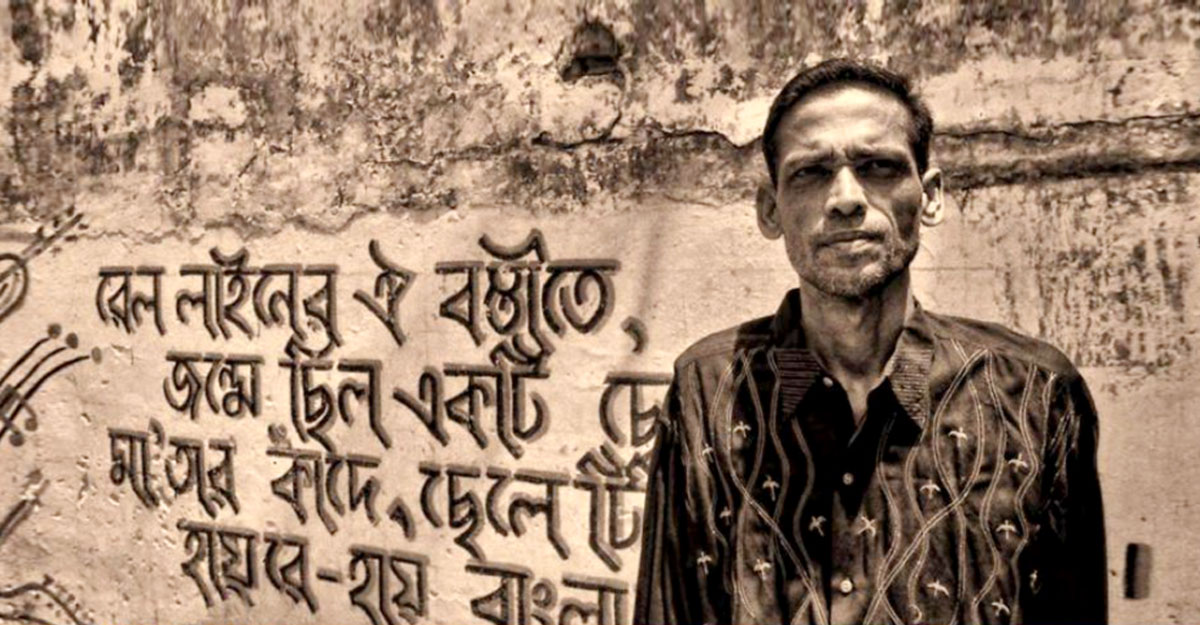 রেল লাইনের ঐ বস্তীতে,
জন্মে ছিল একটি
মা তার কাঁদে, ছেলে টি
হায়রে-হায় বাংলা